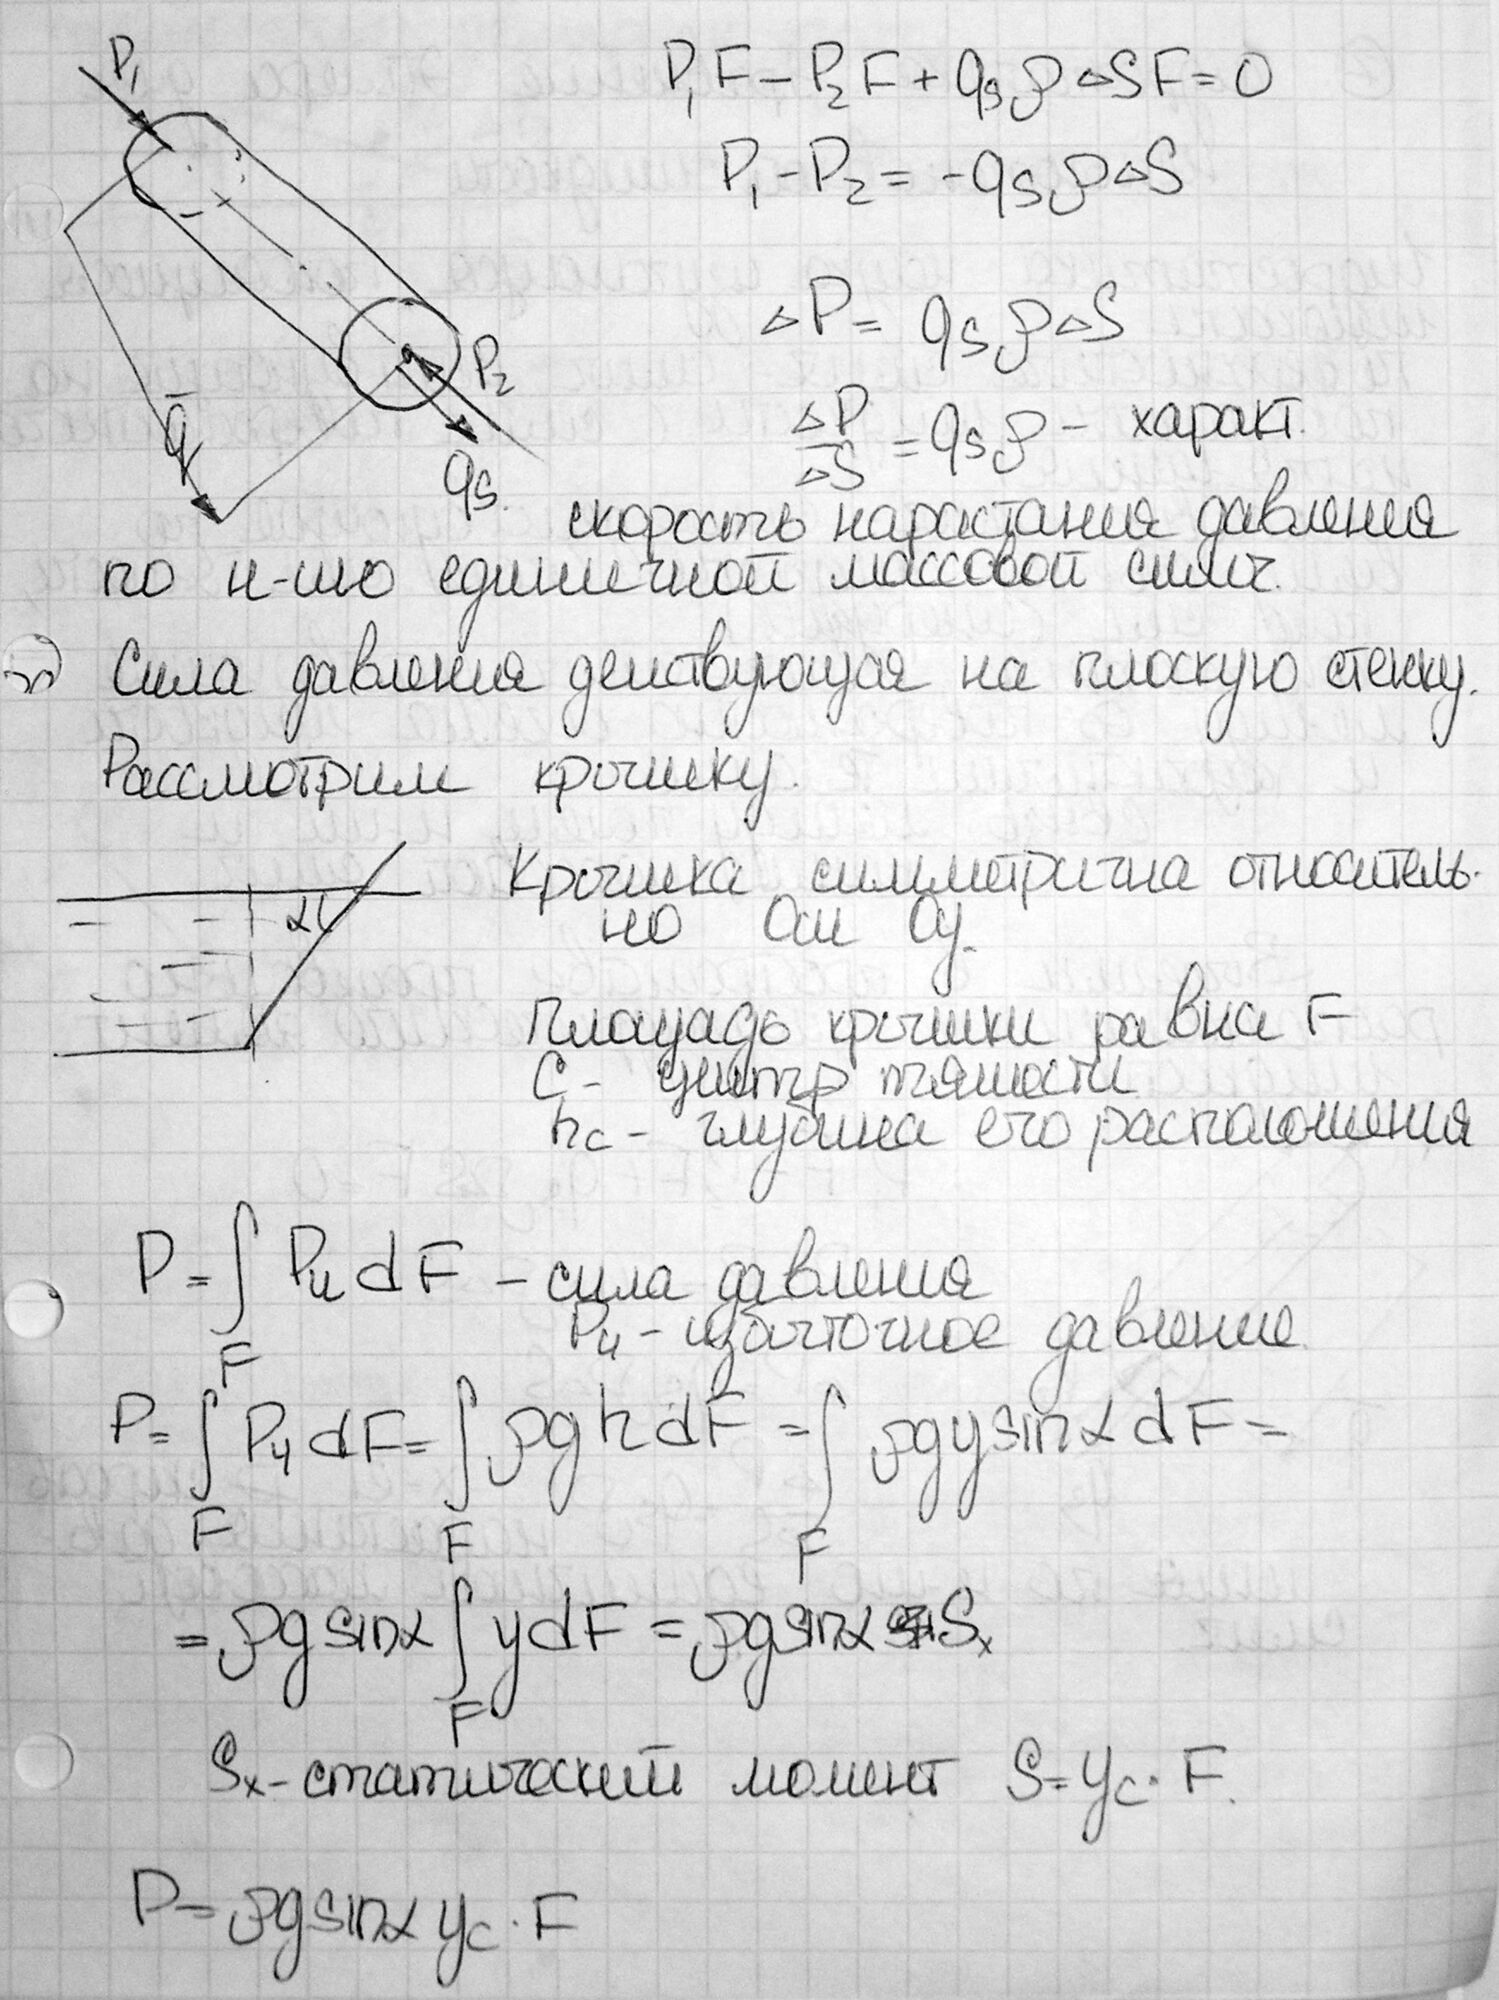 P₁
P₁F − P₂F + qₛρ△SF = 0
P₁ − P₂ = −qₛρ△S
△P = qₛρ△S
P₂
q̄
qₛ.
△P/△S = qₛρ − характ.
скорость нарастания давления
по н-шю единичной массовой силы.
Сила давления действующая на плоскую стенку.
Рассмотрим крышку.
α
Крышка симметрична относитель-
но Оси Oy.
площадь крышки равна F
C − центр тяжести
h_c − глубина его расположения
P = ∫_F Pᵤ dF − сила давления
Pᵤ − избыточное давление
P = ∫_F Pᵤ dF = ∫_F ρgh dF = ∫_F ρgy sinα dF =
= ρg sinα ∫_F y dF = ρg sinα Sₓ
Sₓ − статический момент S = y_c · F.
P = ρg sinα y_c · F